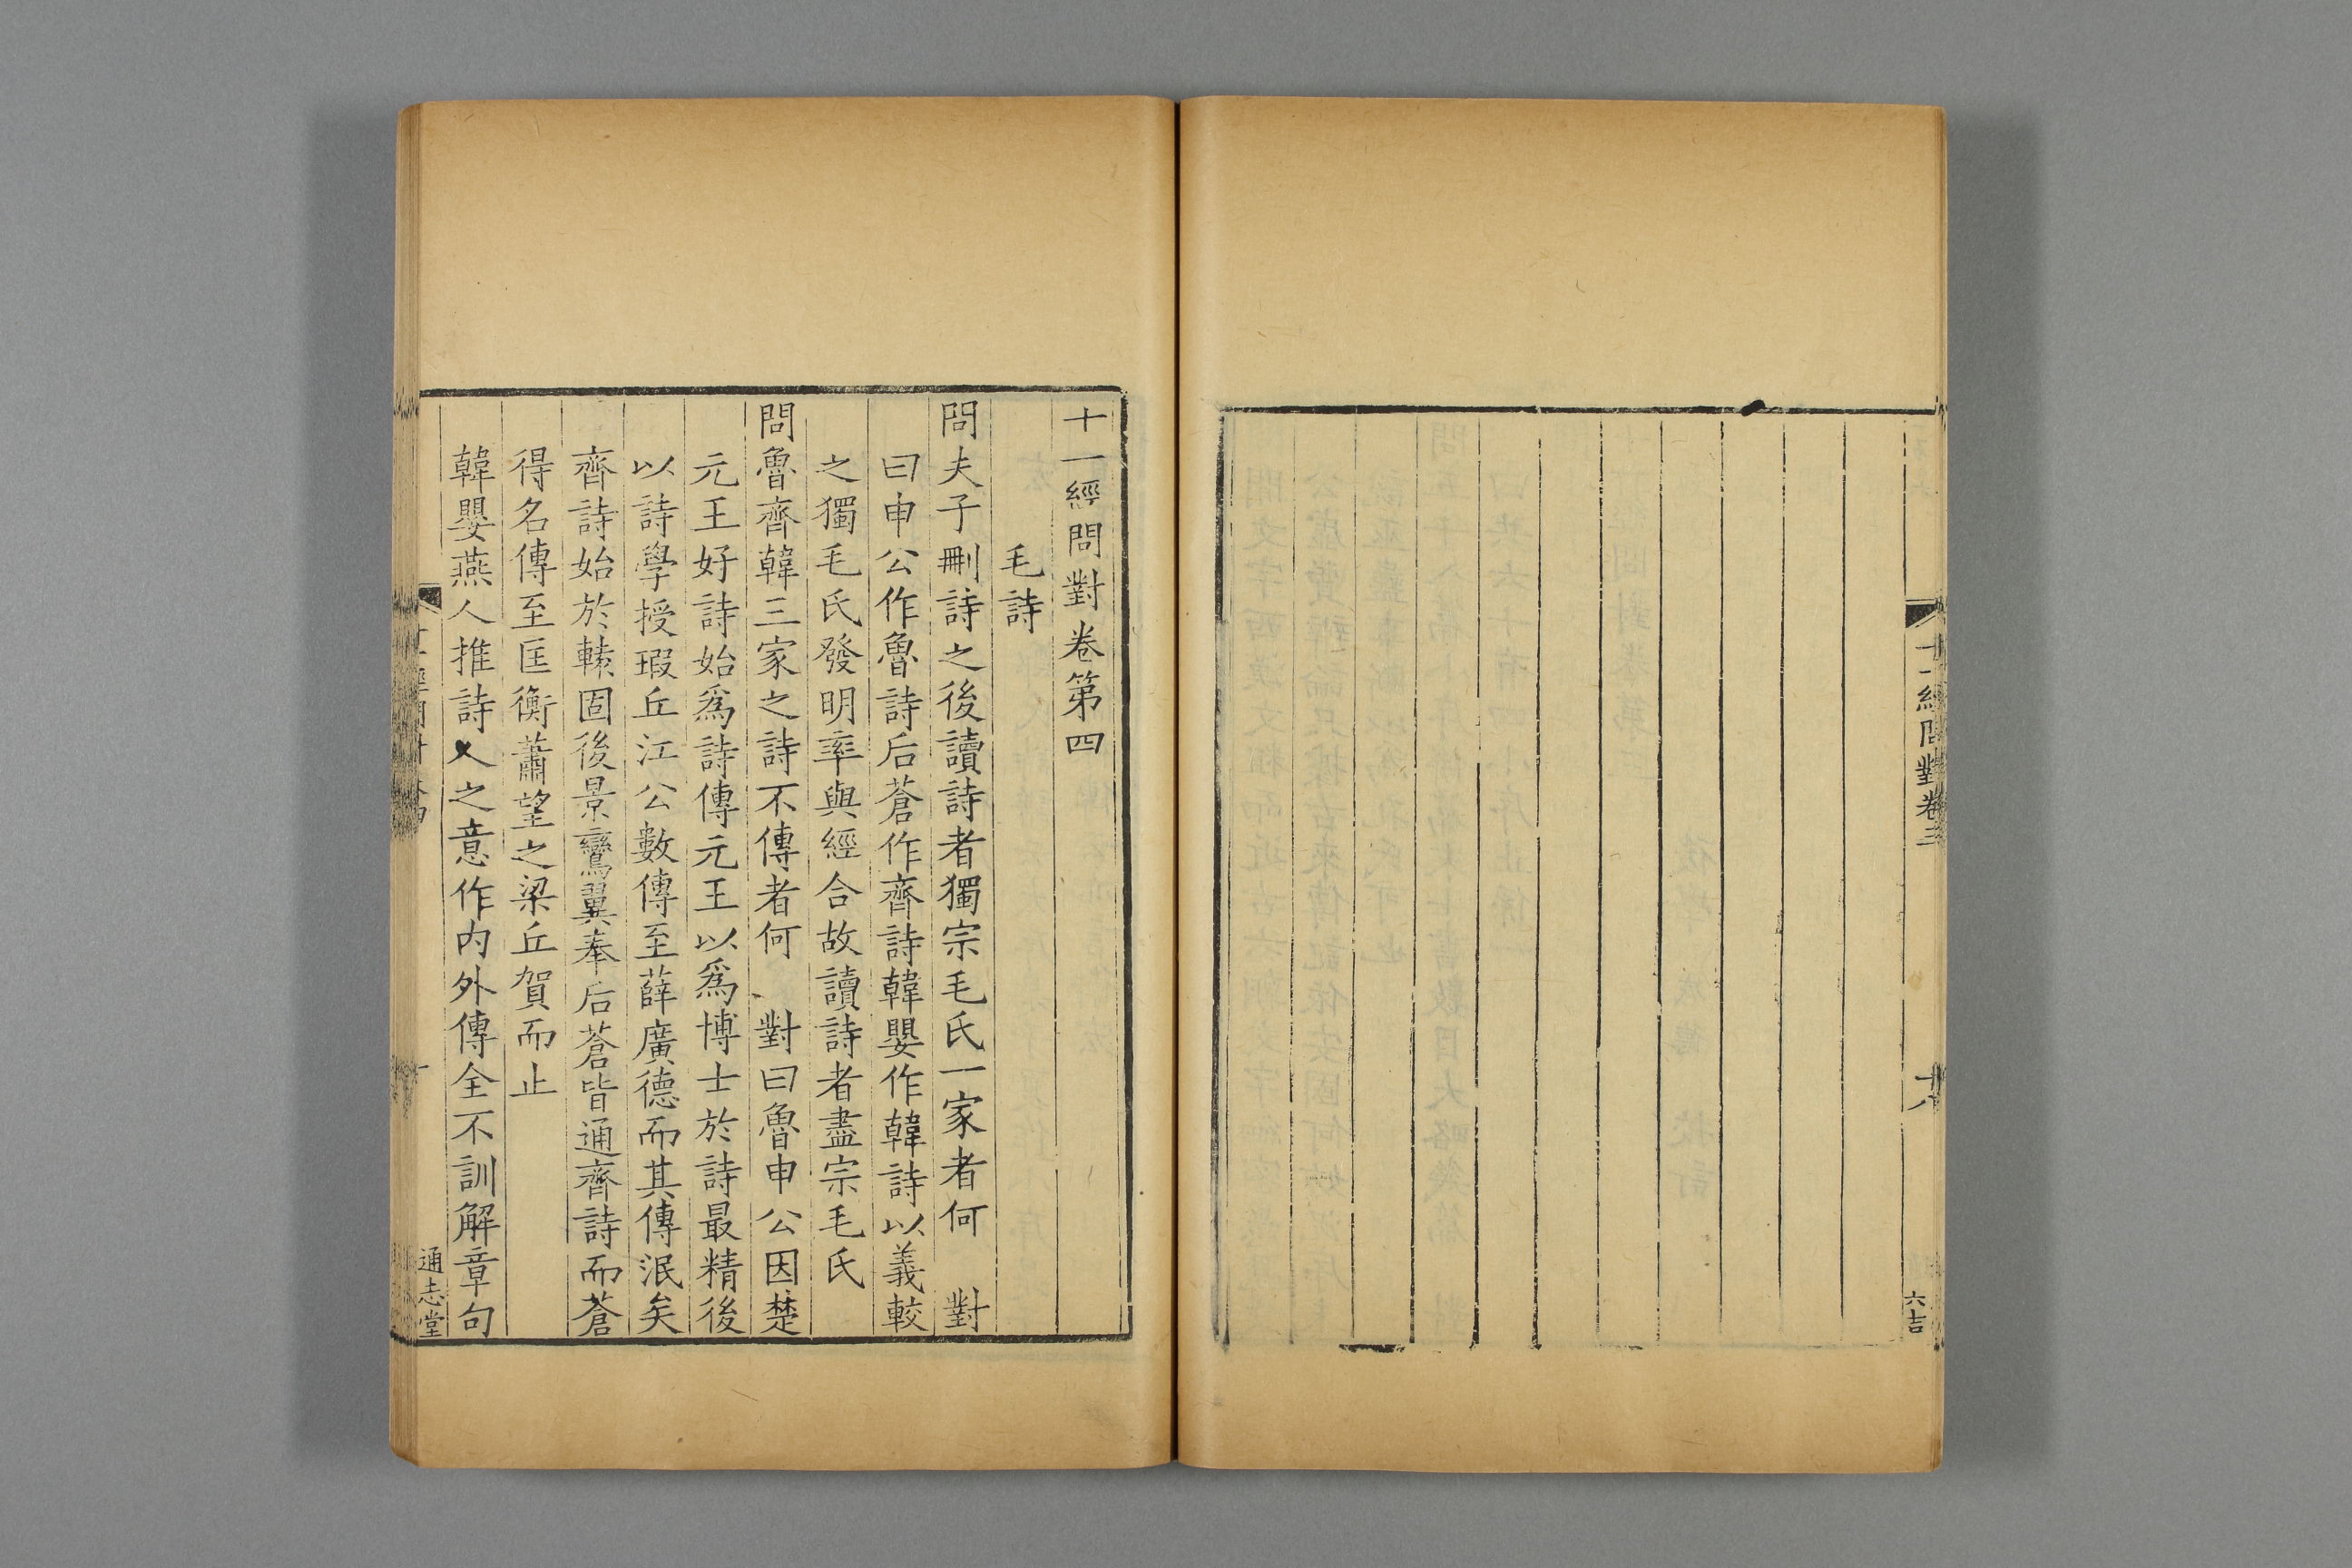 十一經問對卷三
十八
六吉
十一經問對卷第四
毛詩
問夫子刪詩之後讀詩者獨宗毛氏一家者何　對
曰申公作魯詩后蒼作齊詩韓嬰作韓詩以義較
之獨毛氏發明率與經合故讀詩者盡宗毛氏
問魯齊韓三家之詩不傳者何　對曰魯申公因楚
元王好詩始爲詩傳元王以爲博士於詩最精後
以詩學授瑕丘江公數傳至薛廣德而其傳泯矣
齊詩始於轅固後景鸞翼奉后蒼皆通齊詩而蒼
得名傳至匡衡蕭望之梁丘賀而止
韓嬰燕人推詩人之意作内外傳全不訓解章句
通志堂